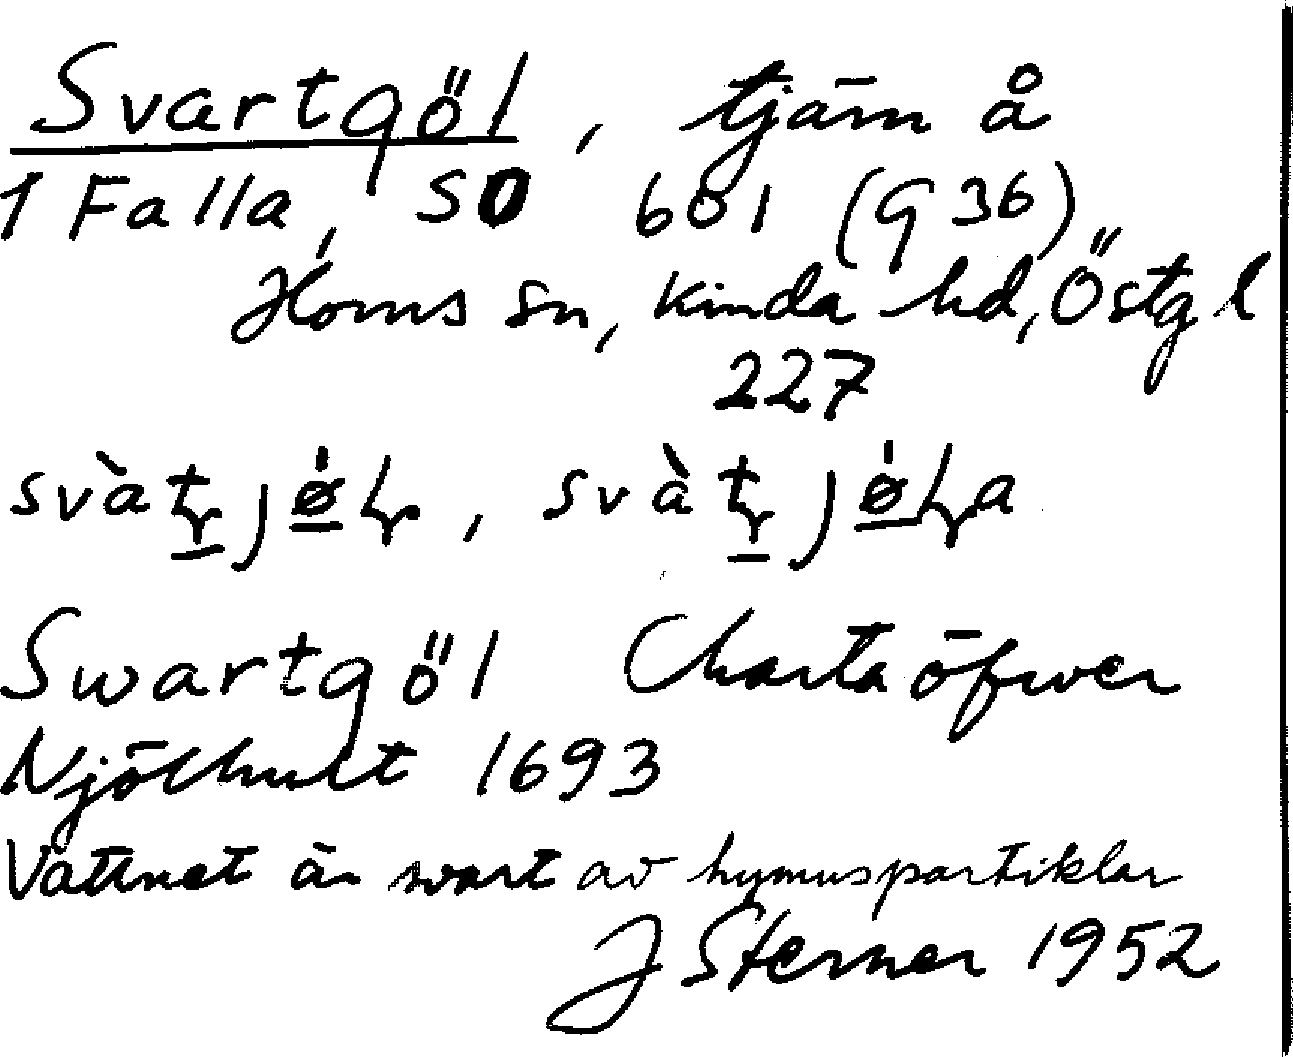 Svartgöl, tjärn å
1 Falla, SO 601 (936)
Horns sn, Kinda hd, Östgl
227
Swartgöl Charta öfwer
Njölhult 1693
Vattnet är svart av hymuspartiklar
J Sterner 1952